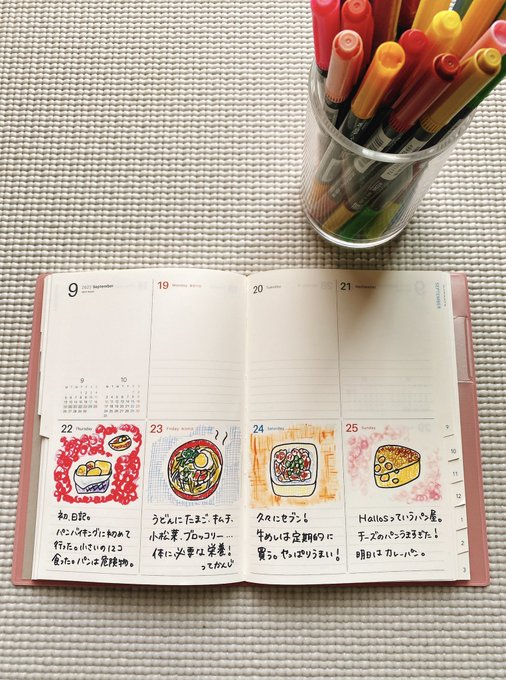 9 2022 September
19 Monday 敬老の日
20 Tuesday
21 Wednesday
9
SEPTEMBER
9 10
22 Thursday
初.日記。
パンバイキングに初めて
行った。小さいの12コ
食った。パンは危険物。
23 Friday 秋分の日
うどんにたまご、キムチ、
小松菜、ブロッコリー…
体に必要な栄養!
ってかんじ
24 Saturday
久々にセブン!
牛めしは定期的に
買う。やっぱりうまい!
25 Sunday
Hallosっていうパン屋。
チーズのパンうますぎた!
明日はカレーパン。
9
10
11
12
1
2
3